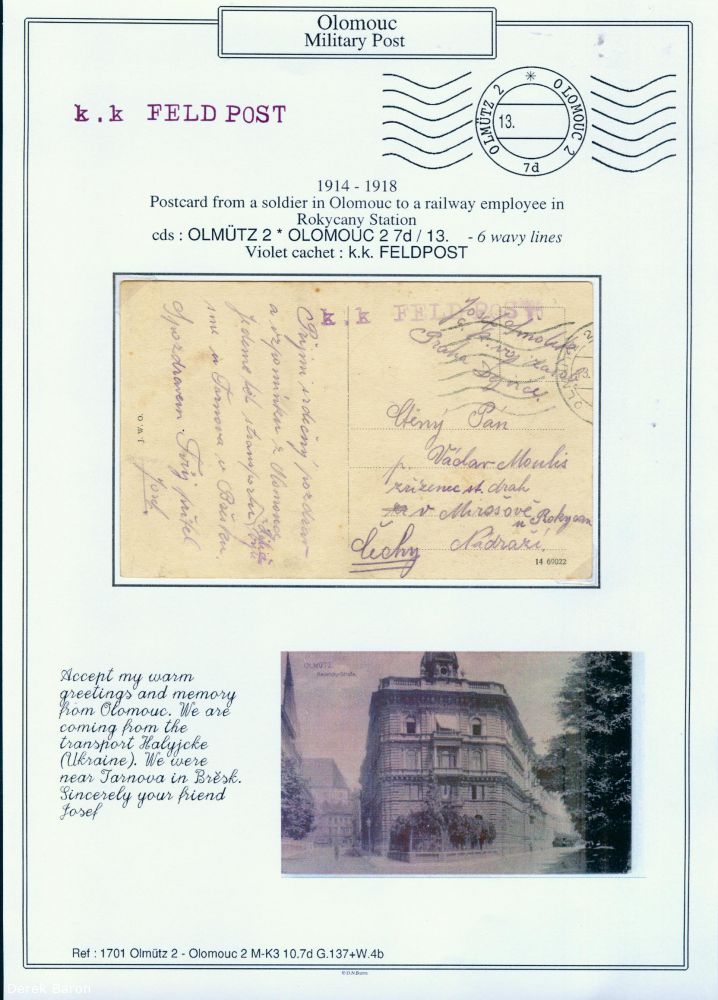 Olomouc
Military Post
k.k FELD POST
OLMÜTZ 2 * OLOMOUC 2
13.
7d
1914 - 1918
Postcard from a soldier in Olomouc to a railway employee in
Rokycany Station
cds : OLMÜTZ 2 * OLOMOUC 2 7d / 13. - 6 wavy lines
Violet cachet : k.k. FELDPOST
k.k FELDPOST
Přijmi srdečný pozdrav
a vzpomínku z Olomouce
jedeme
sme u Tarnova v Břesku.
S pozdravem Tvůj přítel
Josef
Praha
Ctěný Pán
p. Václav Moulis
zřízenec st. drah
v Mirošově
u Rokycan
Nádraží.
Čechy
14 69022
Accept my warm
greetings and memory
from Olomouc. We are
coming from the
transport Halyjcke
(Ukraine). We were
near Tarnova in Brěsk.
Sincerely your friend
Josef
OLMÜTZ.
Ref : 1701 Olmütz 2 - Olomouc 2 M-K3 10.7d G.137+W.4b
© D.N.Baron
Derek Baron